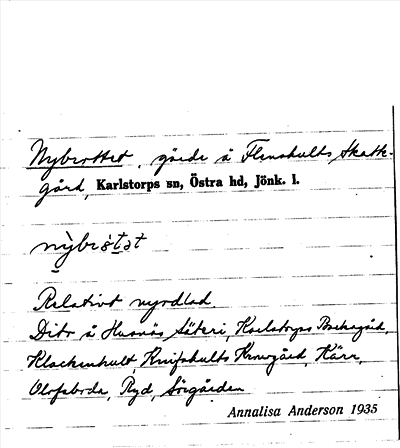 Nybrottet, gärde å Flenshults Skatte-
gård, Karlstorps sn, Östra hd, Jönk. l.
Relativt nyodlad
Dito å Husnäs Säteri, Karlstorps Prästgård,
Klackenhult, Knifshults Kronogård, Kärr,
Olofsborda, Ryd, Sörgården
Annalisa Anderson 1935